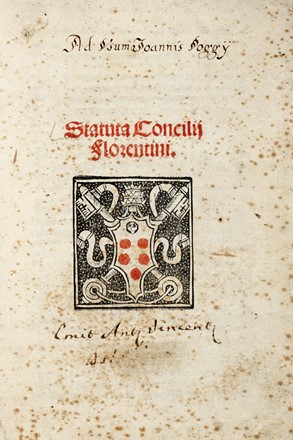 Ad Usum Joannis Poggÿ
Statuta Concilij
Florentini.
Emit Antꝰ Vincent